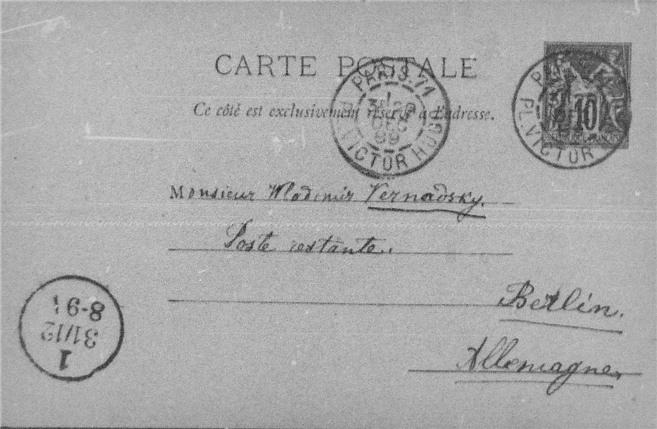 CARTE POSTALE
Ce côté est exclusivement réservé à l'adresse.
PARIS. 71
PL. VICTOR HUGO
10
Monsieur Wladimir Vernadsky.
Poste restante.
Berlin.
Allemagne.
1
31/12
8-9